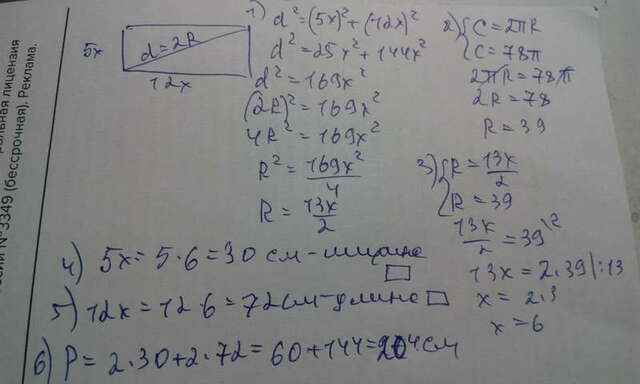 ...альная лицензия
...сии №3349 (бессрочная). Реклама.
5x
d=2R
12x
1) d²=(5x)²+(12x)²
d²=25x²+144x²
d²=169x²
(2R)²=169x²
4R²=169x²
R²=169x²/4
R=13x/2
2) {C=2πR
{C=78π
2πR=78π
2R=78
R=39
3) {R=13x/2
{R=39
13x/2=39\2
13x=2·39|:13
x=2·3
x=6
4) 5x=5·6=30 см-ширина ▭
5) 12x=12·6=72см-длина ▭
6) P=2·30+2·72=60+144=204см